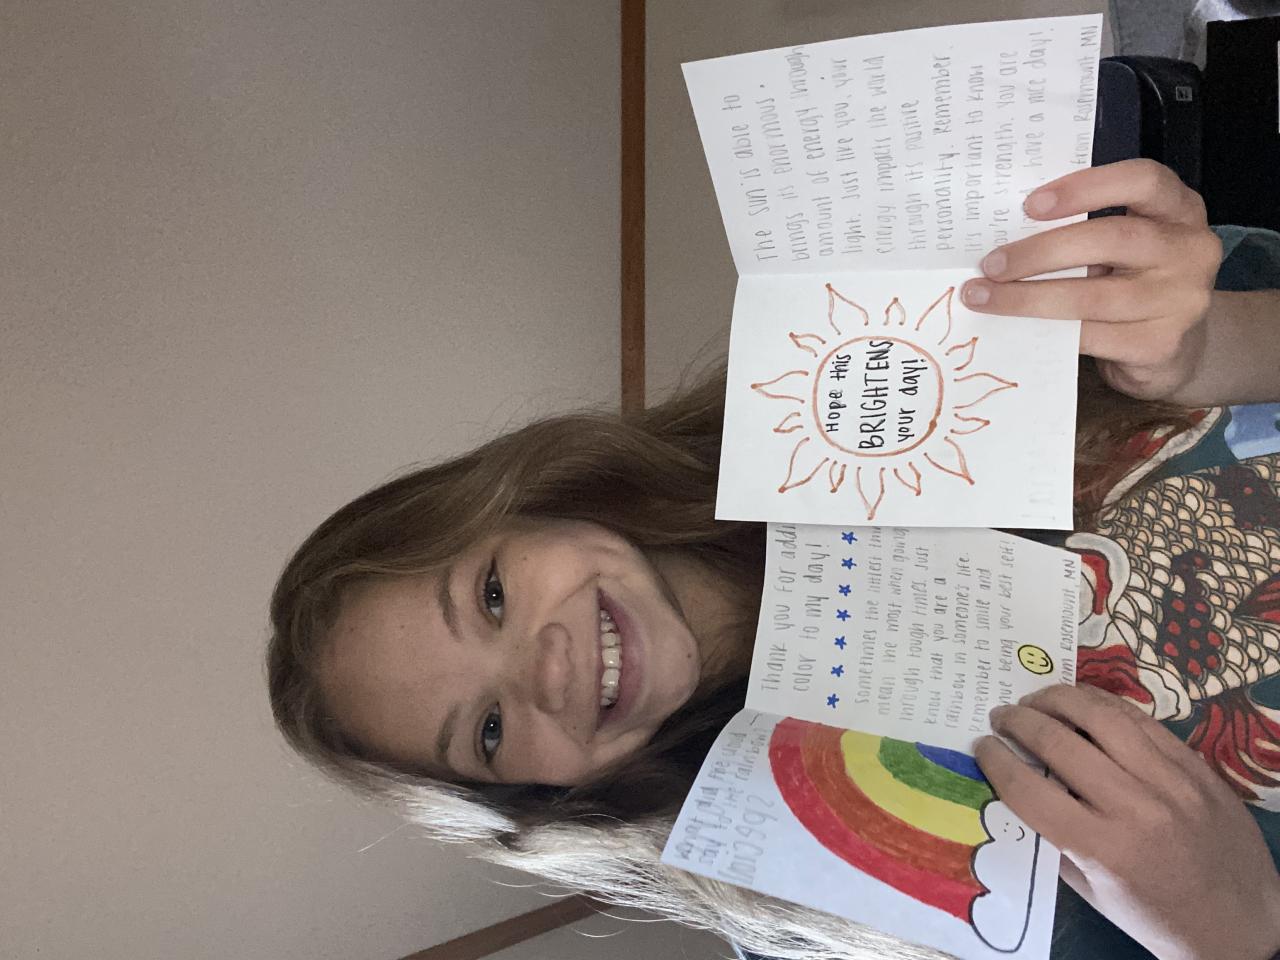 What did the cloud
say to the rainbow?
Thank you for addi
color to my day!
sometimes the littlest thin
mean the most when going
through tough times. Just
know that you are a
rainbow in someone's life.
Remember to smile and
nue being your best self!
from Rosemount, MN
Hope this
BRIGHTENS
your day!
The sun is able to
brings its enormous,
amount of energy through
light. Just like you, your
energy impacts the world
through its positive
personality. Remember,
it's important to know
you're strength. You are
, have a nice day!
from Rosemount, MN